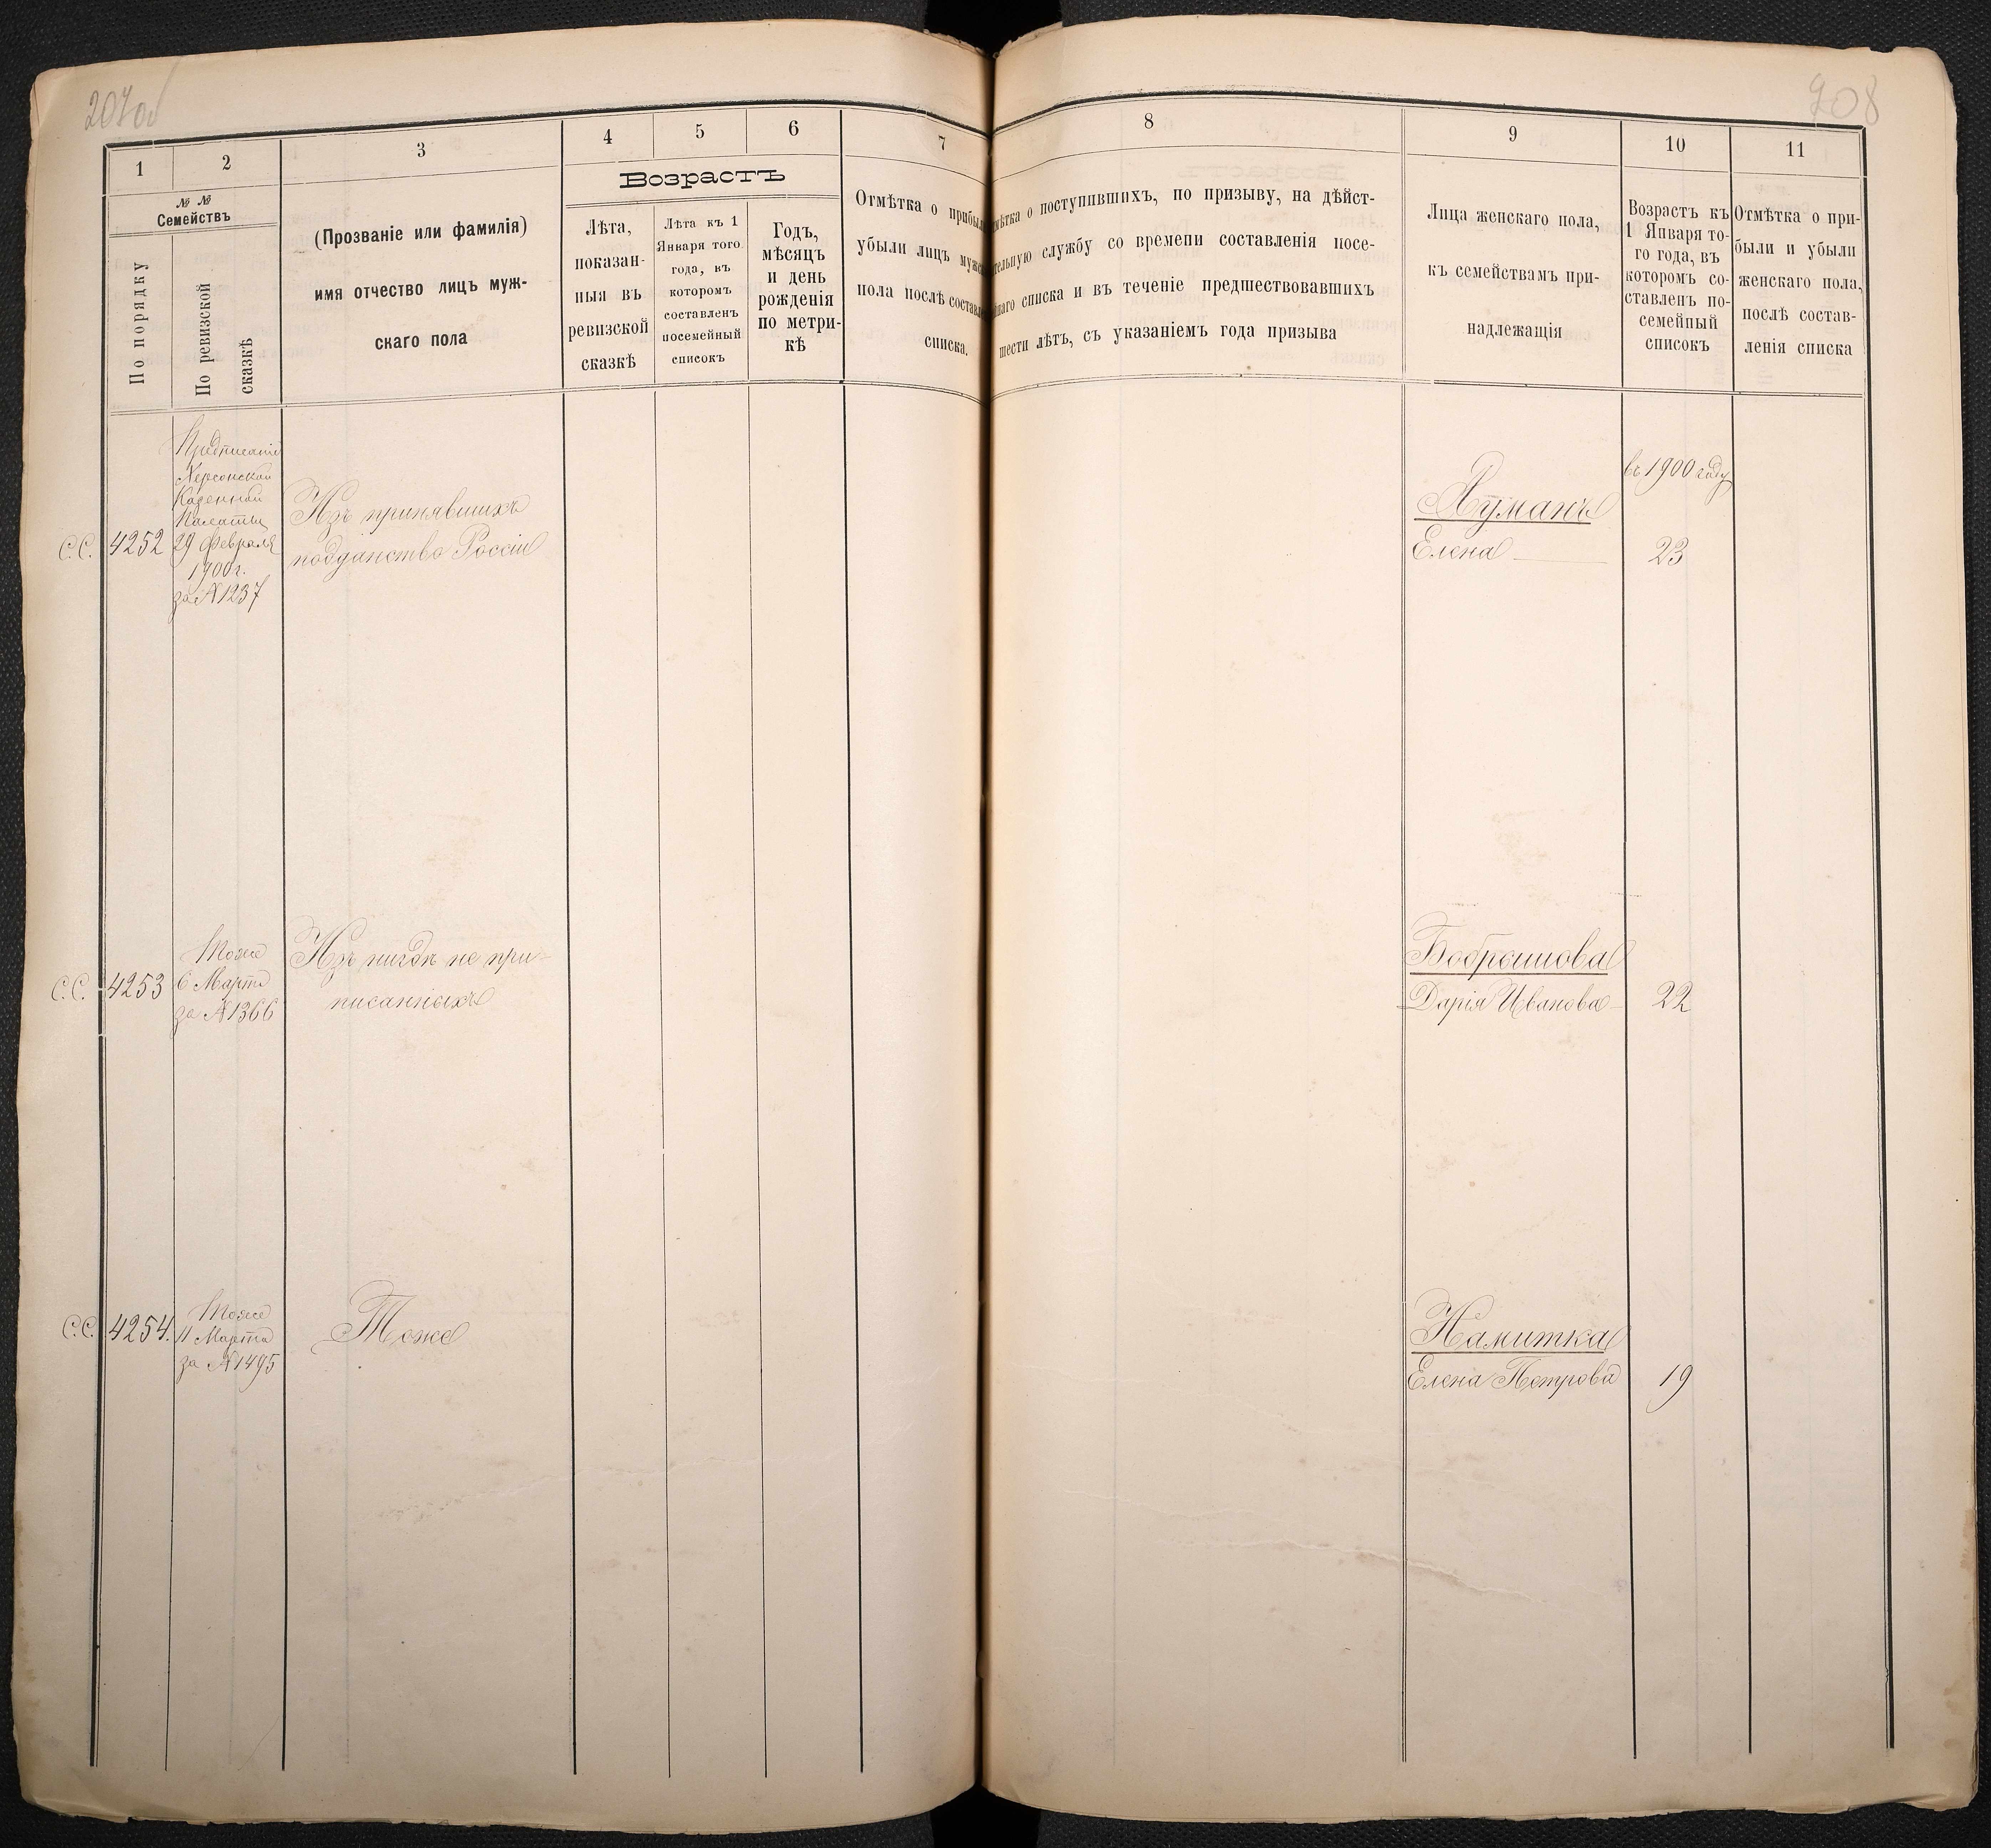 207об
208
1
2
3
4
5
6
7
8
9
10
11
№ №
Семействъ
По порядку
По ревизской
сказкѣ
(Прозваніе или фамилія)
имя отчество лицъ муж-
скаго пола
Возрастъ
Лѣта,
показан-
ныя въ
ревизской
сказкѣ
Лѣта къ 1
Января того
года, въ
которомъ
составленъ
посемейный
списокъ
Годъ,
мѣсяцъ
и день
рожденія
по метри-
кѣ
Отмѣтка о прибыл
убыли лицъ мужс
пола послѣ составле
списка.
мѣтка о поступившихъ, по призыву, на дѣйст-
тельную службу со времени составленія посе-
йнаго списка и въ теченіе предшествовавшихъ
шести лѣтъ, съ указаніемъ года призыва
Лица женскаго пола,
къ семействамъ при-
надлежащія
Возрастъ къ
1 Января то-
го года, въ
которомъ со-
ставленъ по-
семейный
списокъ
Отмѣтка о при-
были и убыли
женскаго пола,
послѣ состав-
ленія списка
С.С.
4252
Предписаніе
Херсонской
Казенной
Палаты
29 Февраля
1900 г.
за № 1237
Изъ принявшихъ
подданство Россіи
въ 1900 году
Елена
23
С.С.
4253
Тоже
6 Марта
за № 1366
Изъ нигдѣ не при-
писанныхъ
Дарія Иванова
22
С.С.
4254.
Тоже
11 Марта
за № 1495
Тоже
Намитка
Елена Петрова
19